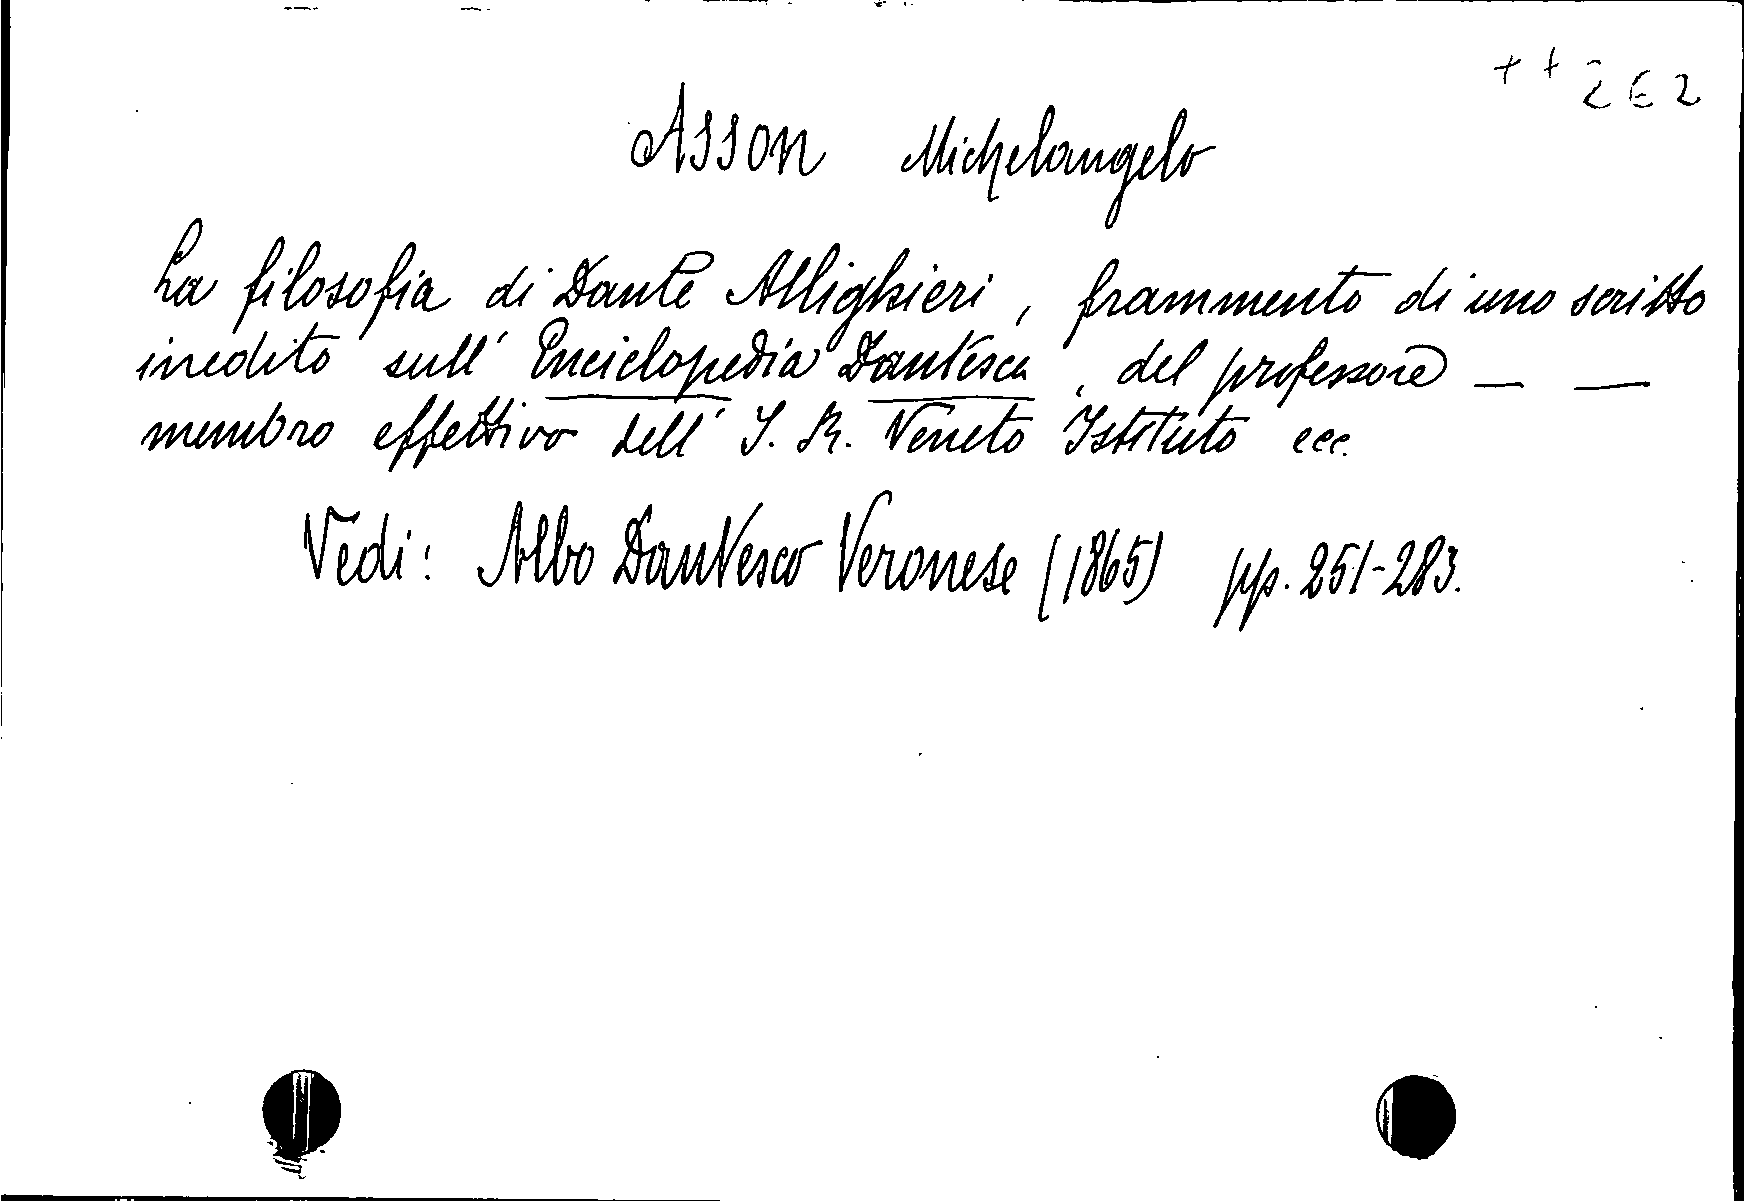 ++ 2E2
Asson Michelangelo
La filosofia di Dante Allighieri, frammento di uno scritto
inedito sull' Enciclopedia Dantesca, del professore — —
membro effettivo dell' I. R. Veneto Istituto ecc.
Vedi: Albo Dantesco Veronese (1865) pp. 251-283.